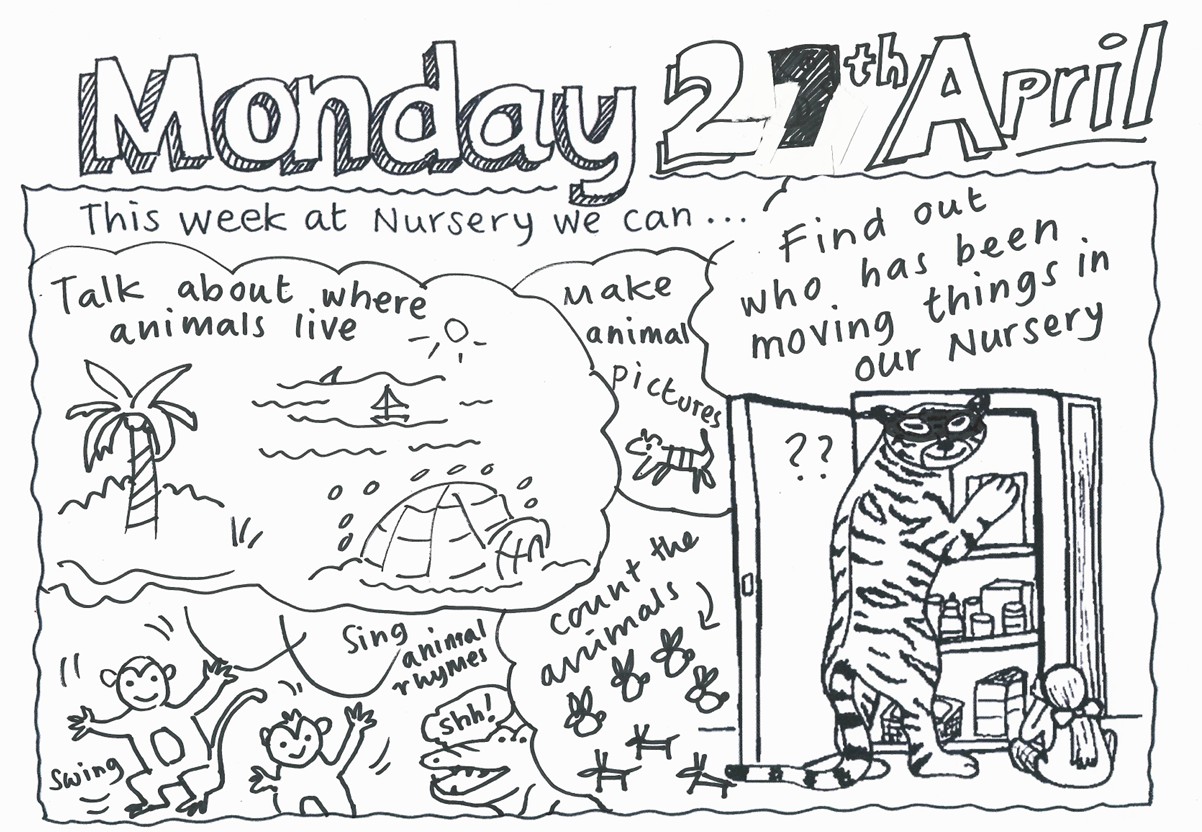 Monday 27th April
This week at Nursery we can ...
Talk about where
animals live
Make
animal
pictures
Find out
who has been
moving things in
our Nursery
??
count the
animals
Sing
animal
rhymes
Shh!
Swing